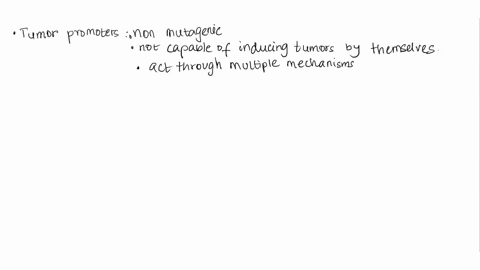 • Tumor promoters : non mutagenic
• not capable of inducing tumors by themselves
• act through multiple mechanisms